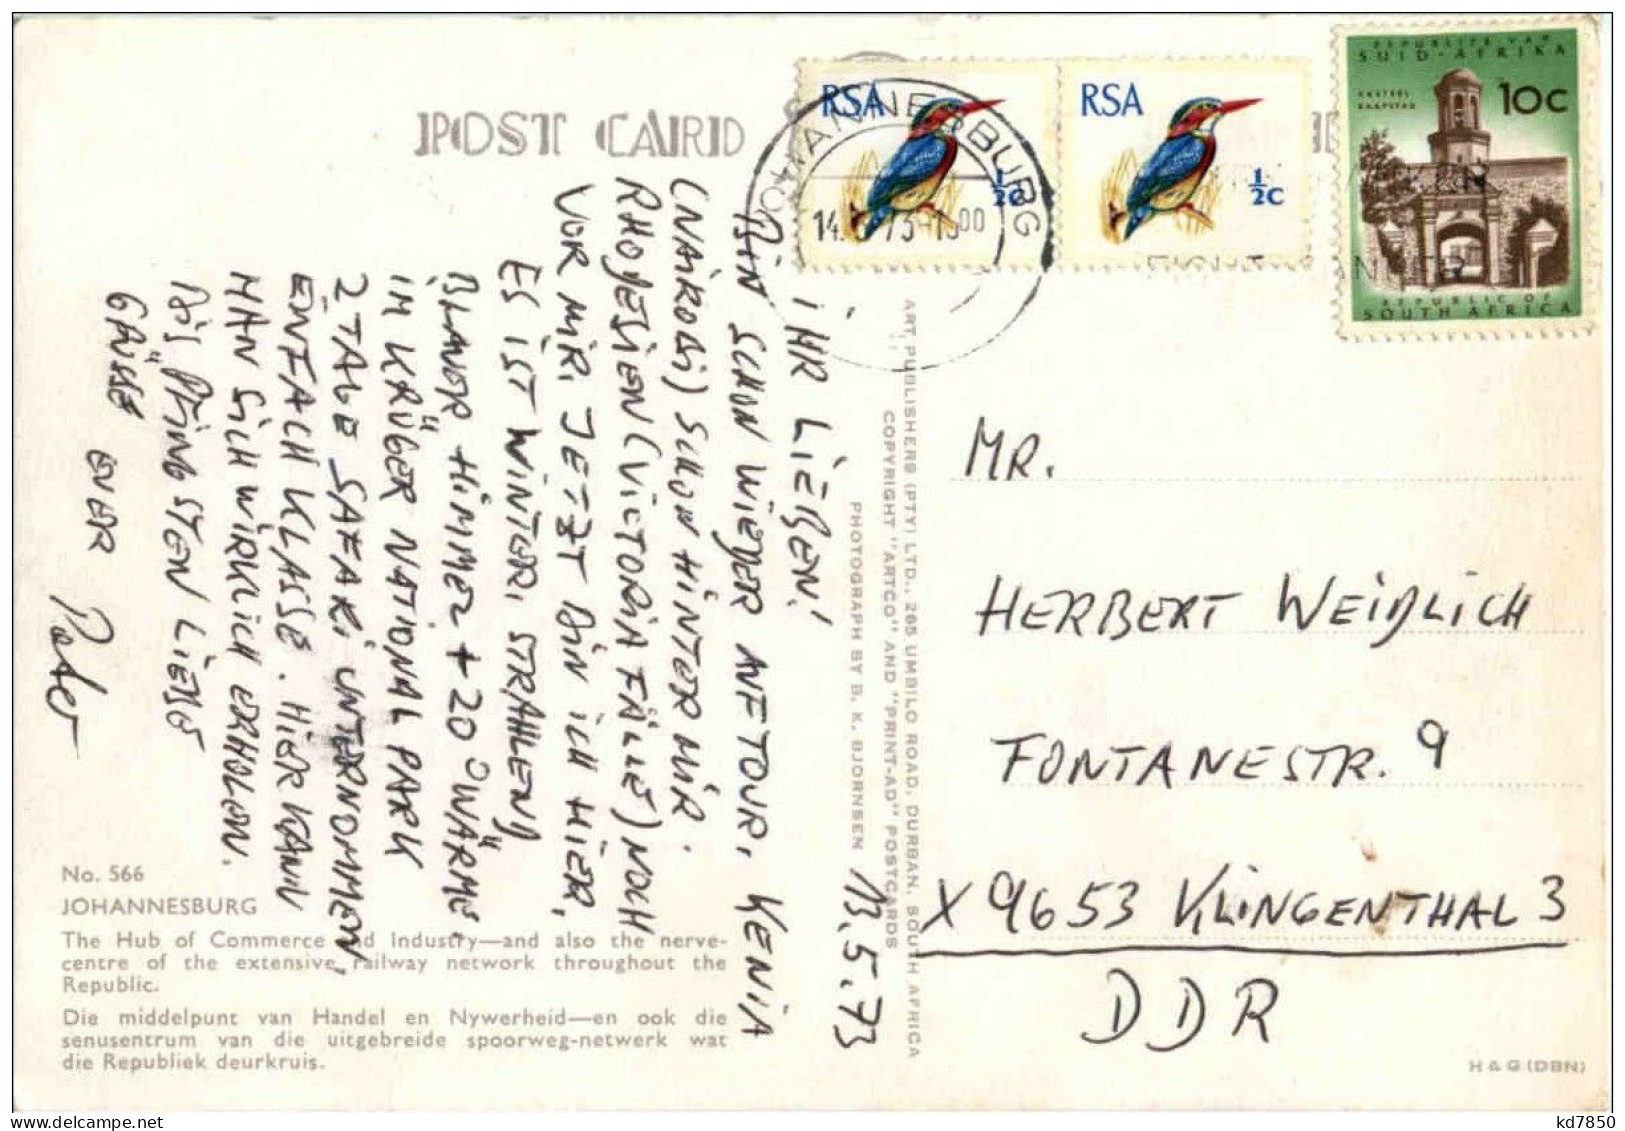 POST CARD
RSA
½c
RSA
½c
REPUBLIEK VAN
SUID-AFRIKA
KASTEEL
KAAPSTAD
10c
REPUBLIC OF
SOUTH AFRICA
JOHANNESBURG
13.5.73
IHR LIEBEN!
BIN SCHON WIEDER AUF TOUR, KENIA
(NAIROBI) SCHON HINTER MIR.
RHODESIEN (VICTORIA FÄLLE) NOCH
VOR MIR, JETZT BIN ICH HIER,
ES IST WINTER, STRAHLEND
BLAUER HIMMEL + 20° WÄRME.
IM KRÜGER NATIONAL PARK
2 TAGE SAFARI UNTERNOMMEN,
EINFACH KLASSE. HIER KANN
MAN SICH WIRKLICH ERHOLEN.
BIS PFINGSTEN LIEBE
GRÜSSE EUER
Peter
ART PUBLISHERS (PTY) LTD., 265 UMBILO ROAD, DURBAN, SOUTH AFRICA
COPYRIGHT "ARTCO" AND "PRINT-AD" POSTCARDS
PHOTOGRAPH BY B. K. BJORNSEN
MR.
HERBERT WEIDLICH
FONTANESTR. 9
X 9653 KLINGENTHAL 3
DDR
No. 566
JOHANNESBURG
The Hub of Commerce and Industry—and also the nerve-
centre of the extensive railway network throughout the
Republic.
Die middelpunt van Handel en Nywerheid—en ook die
senusentrum van die uitgebreide spoorweg-netwerk wat
die Republiek deurkruis.
H & G (DBN)
kd7850